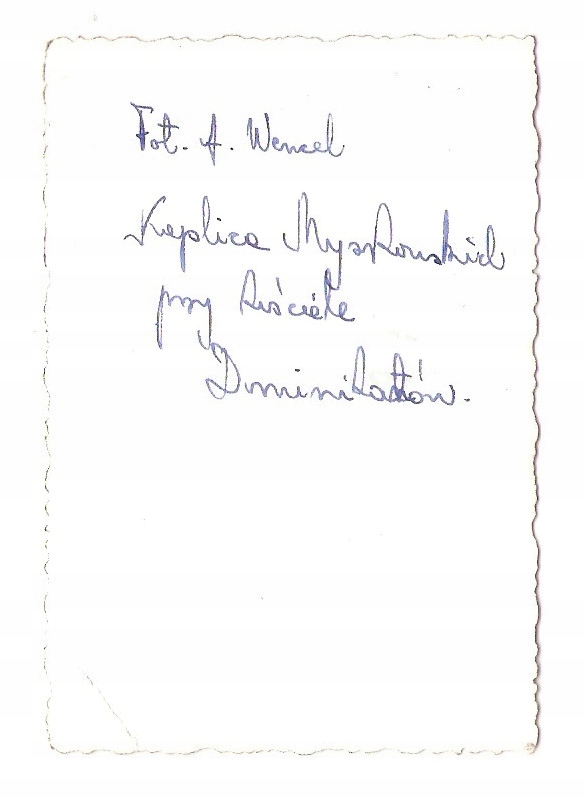 Fot. A. Wencel
Kaplica Myszkowskich
przy kościele
Dominikanów.